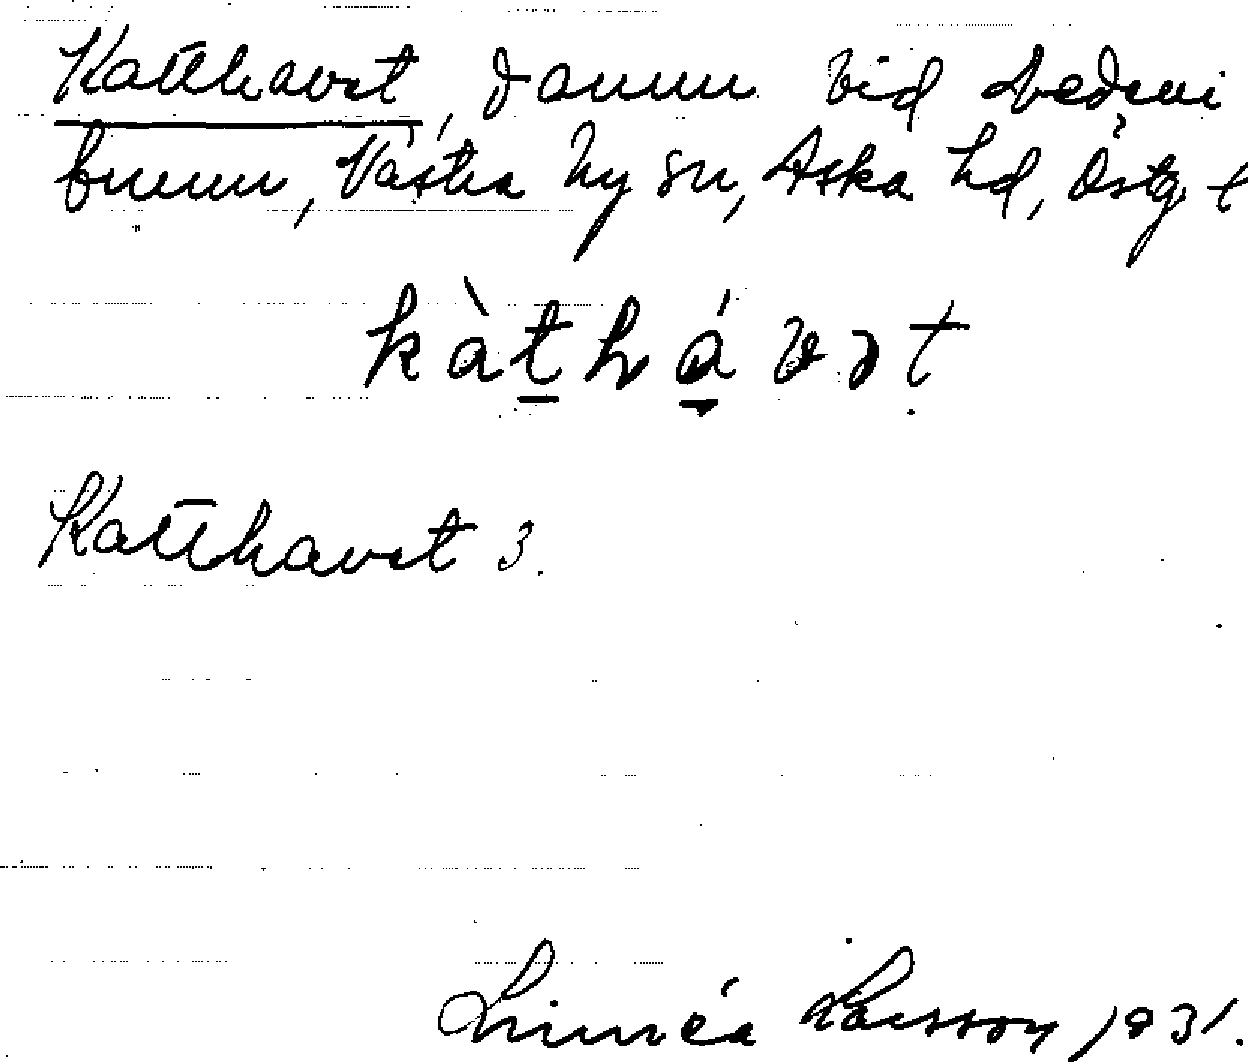 Katthavet, damm vid
brunn, Västra Ny sn, Aska hd, Östg. l
kàt̲há̲vət
Katthavet 3.
Linnéa Larsson 1931.